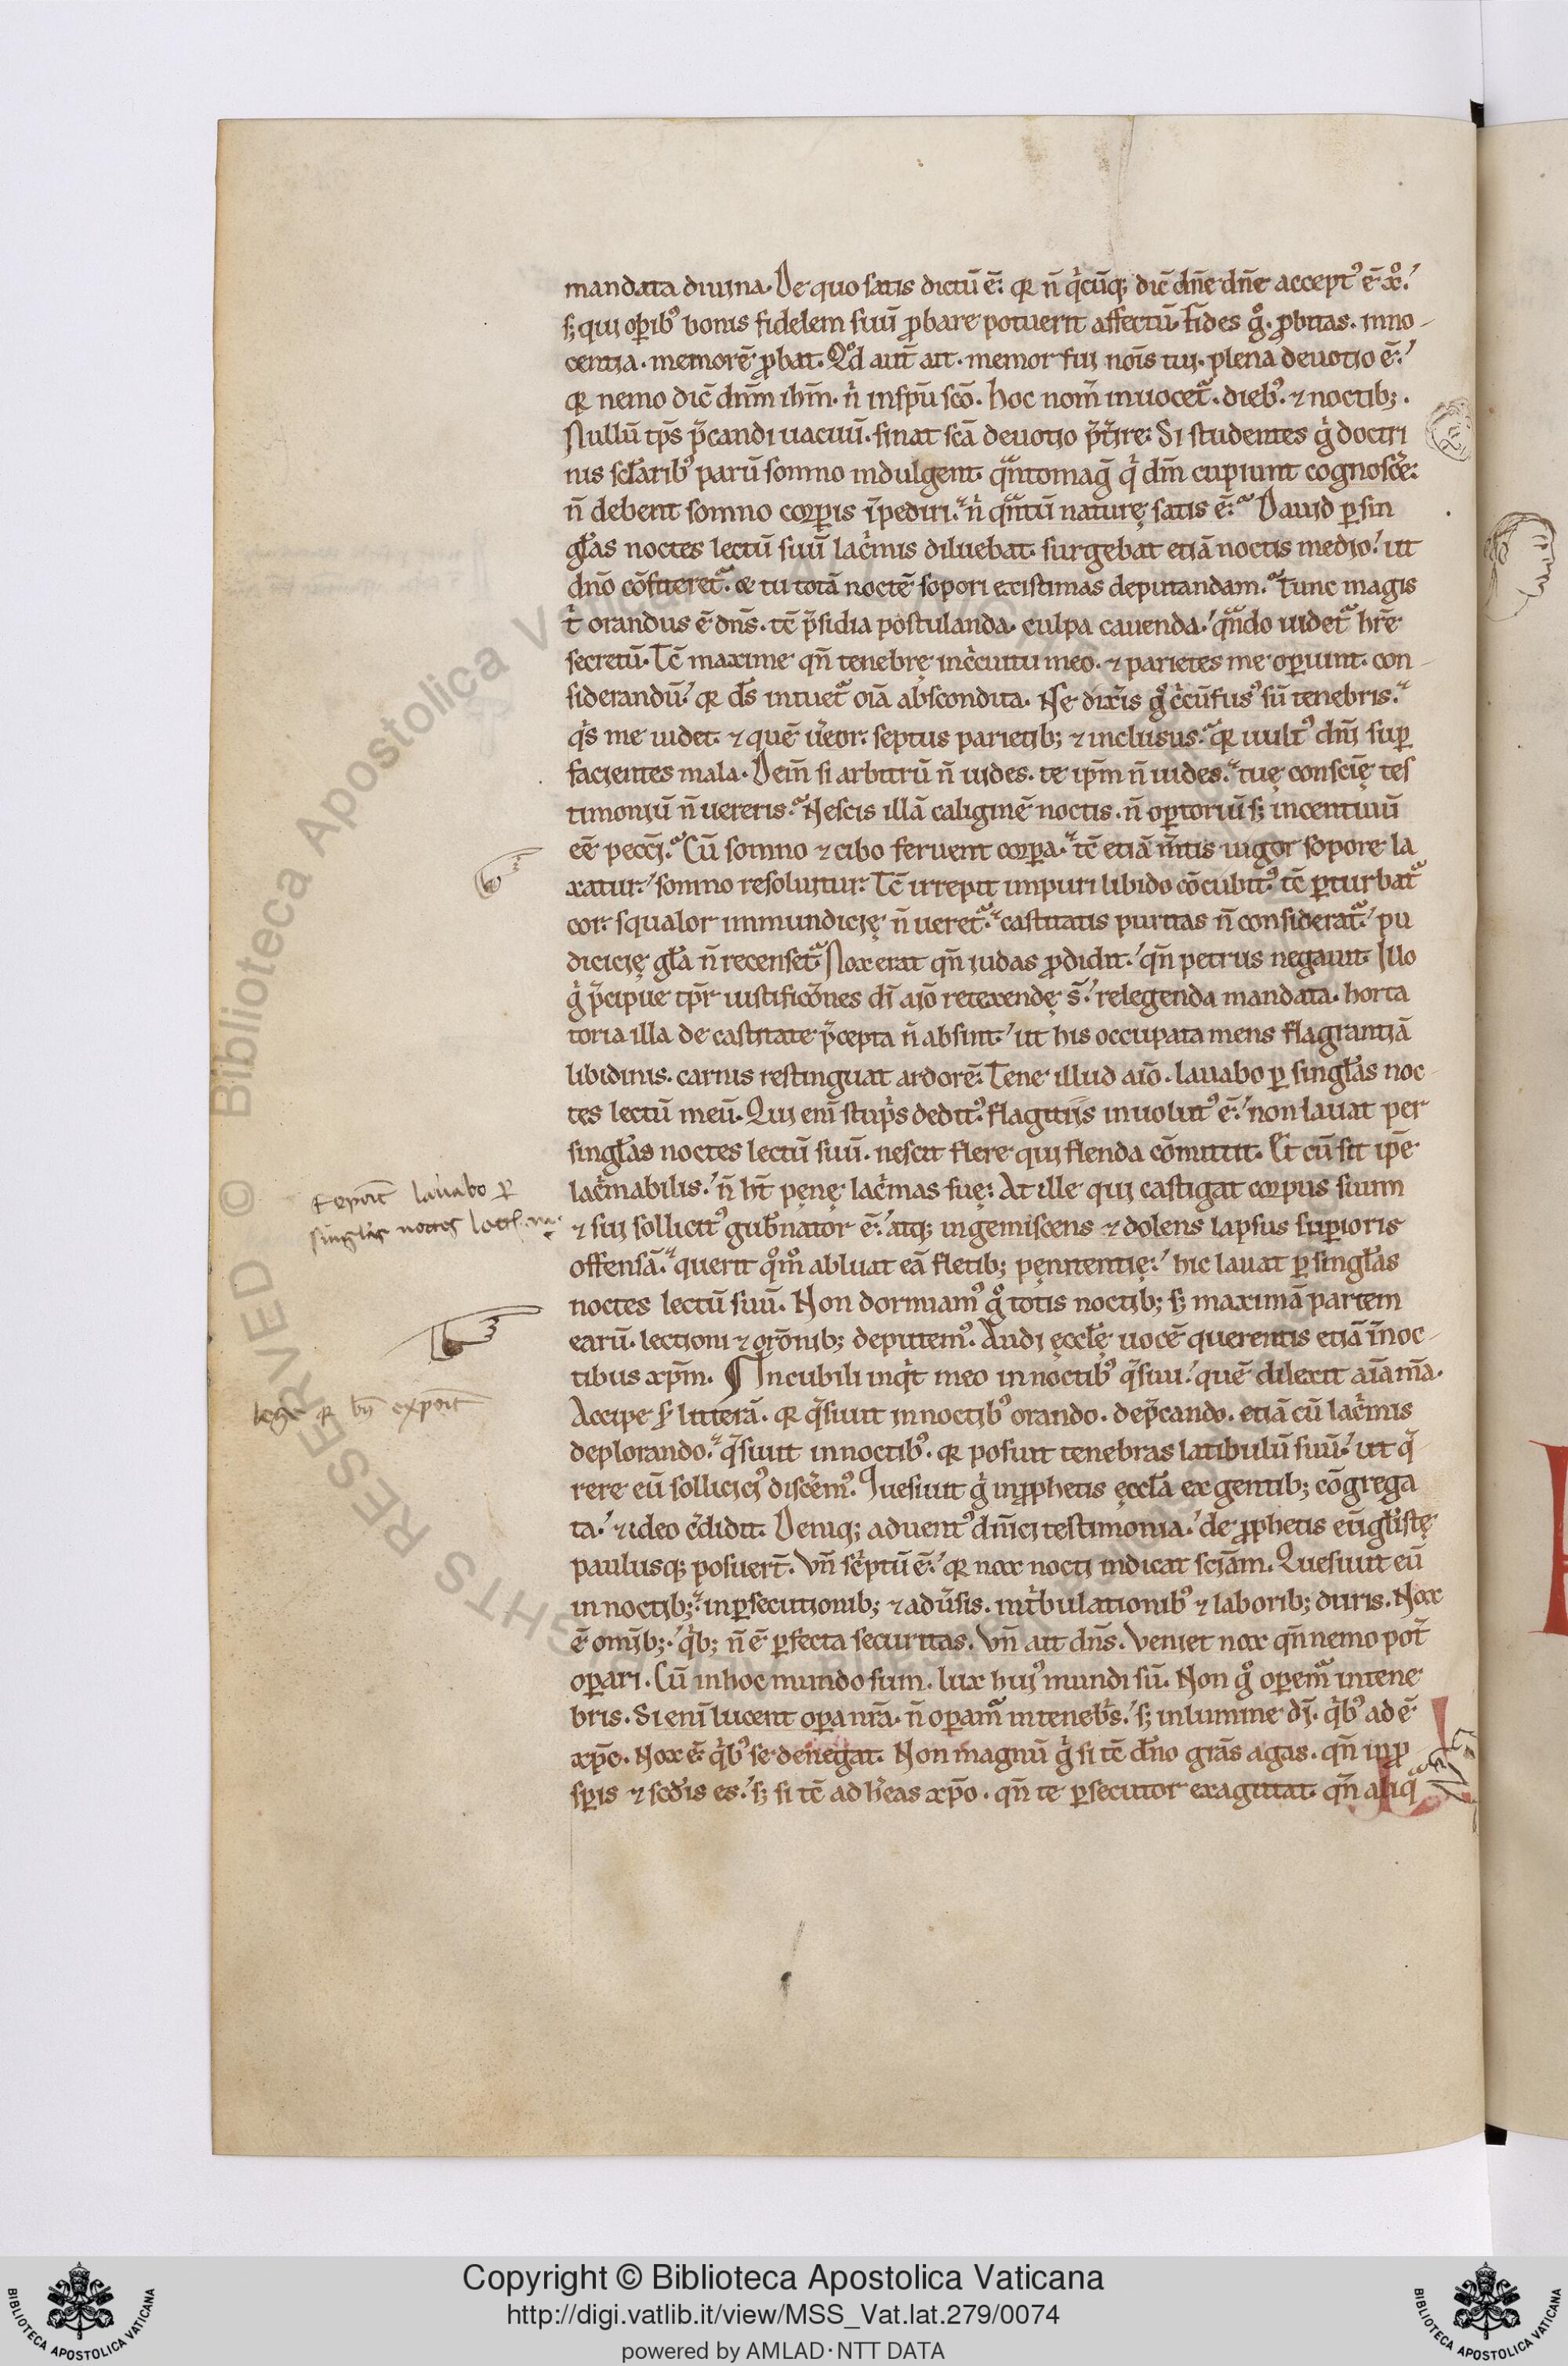 mandata diuina. De quo satis dictū ē. qꝛ n̄ q̇cūq; dic̄ dn̄e dn̄e accept᷒ ē xͦ.
s; qui oꝑib᷒ bonis fidelem suū ꝓbare potuerit affectū. fides gͦ. ꝓbitas. inno-
centia. memorē ꝓbat. Qͦd aut̄ ait. memor fui noīs tui. plena deuotio ē.
qꝛ nemo dic̄ dn̄m ihm̄. n̓ in sp̄u sc̄o. hoc nom̄ inuocetᷓ. dieb᷒. ⁊ noctib;.
Nullū tp̄s p̄candi uacuū. sinat sc̄a deuotio p̄t̓ire. Si studentes g̓ doctri
nis sc̄larib᷒ parū somno indulgent. qᷓntomag̓ q̇ dm̄ cupiunt cognosc̓e.
n̄ debent somno corꝑis īpediri. n̓ qᷓntū naturę satis ē. Dauid ꝑ sin
gl̄as noctes lectū suū lac̓mis diluebat. surgebat etiā noctis medio. ut
dn̄o cōfiteretᷓ. & tu totā noctē sopori existimas deputandam. Tunc magis
t̓ orandus ē dn̄s. tc̄ p̄sidia postulanda. culpa cauenda. qᷓndo uidetᷓ hr̄e
secretū. Tc̄ maxime qn̄ tenebrę in c̓cuitu meo. ⁊ parietes me oꝑiunt. con-
siderandū. qꝛ ds̄ intuetᷓ oīa abscondita. Ne dix̓is gͦ c̓cūfus᷒ sū tenebris.
q̇s me uidet. ⁊ quē u̓eor. septus parietib; ⁊ inclusus. qꝛ uult᷒ dn̄i suꝑ
facientes mala. Dein̄ si arbitrū n̄ uides. te ip̄m n̄ uides. tuę conscię̄ tes
timoniū n̄ uereris. Nescis illā caliginē noctis. n̄ oꝑtoriū s; incentiuū
eē̄ pecc̄i. Cū somno ⁊ cibo feruent corꝑa. tc̄ etiā m̄tis uigor sopore la
xatur. somno resoluitur. Tc̄ irrepit impuri libido cōcubit᷒. tc̄ ꝑturbatᷓ
cor. squalor immundicię n̄ ueretᷓ. castitatis puritas n̄ consideratᷓ. pu
dicicię gl̄a n̄ recensetᷓ. Nox erat qn̄ iudas ꝓdidit. qn̄ petrus negauit. Illo
g̓ p̄cipue tp̄r iustificōnes dī aīo retexendę s̄. relegenda mandata. horta
toria illa de castitate p̄cepta n̄ absint. ut his occupata mens flagrantiā
libidinis. carnis restinguat ardorē. Tene illud aīo. lauabo ꝑ singl̄as noc-
tes lectū meū. Qui eni stup̓s dedit᷒. flagitiis inuolut᷒ ē. non lauat per
singl̄as noctes lectū suū. nescit flere qui flenda cōmittit. Et cū sit ip̄e
lac̓mabilis. n̄ ht̄ pęnę lac̓mas suę. At ille qui castigat corpus suum
⁊ sui sollicit᷒ gub̓nator ē. atq; ingemiscens ⁊ dolens lapsus suꝑioris
offensā. querit qͦmͦ abluat eā fletib; pęnitentię. hic lauat ꝑ singl̄as
noctes lectū suū. Non dormiam᷒ gͦ totis noctib; s; maximā partem
earū. lectioni ⁊ orōnib; deputem᷒. Audi ęccl̄ę uocē querentis etiā ī noc-
tibus xp̄m. In cubili inq̇t meo in noctib᷒ q̄siui. quē dilexit aīa m̄a.
Accipe s̄ litterā. qꝛ q̄siuit in noctib᷒ orando. dep̄cando. etiā cū lac̓mis
deplorando. q̄siuit in noctib᷒. qꝛ posuit tenebras latibulū suū. ut q̄
rere eū sollicici᷒ disc̓em᷒. Quesiuit g̓ in ꝓphetis ęccl̄a ex gentib; cōgrega
ta. ⁊ ideo c̓didit. Deniq; aduent᷒ dn̄ici testimonia. de ꝓphetis eūgl̄istę
paulusq; posuer̄t. vn̄ sc̓ptū ē. qꝛ nox nocti indicat sciā̄m. Quesiuit eū
in noctib;. in ꝑsecutionib; ⁊ adu̓sis. in t̓bulationib᷒ ⁊ laborib; duris. Nox
ē omīb;. q̇b; n̄ ē ꝑfecta securitas. vn̄ ait dn̄s. Veniet nox qn̄ nemo pot̄
oꝑari. Cū in hoc mundo sum. lux hui᷒ mundi sū. Non gͦ oꝑemᷓ in tene
bris. Si eni lucent oꝑa nr̄a. n̄ oꝑamᷓ in teneb̓s. s; in lumine dī. q̇b᷒ ad ē
xp̄c. Nox ē q̇b᷒ se denegat. Non magnū g̓ si tc̄ dn̄o grās agas. qn̄ in ꝓ
sꝑis ⁊ sed̓is es. s; si tc̄ ad h̓eas xp̄o. qn̄ te ꝑsecutor exagitat. qn̄ aliqᷓ
exponit lauabo ꝑ
singl̄as noctes
lege qꝛ bn̄ exponit
Copyright © Biblioteca Apostolica Vaticana
http://digi.vatlib.it/view/MSS_Vat.lat.279/0074
powered by AMLAD·NTT DATA
BIBLIOTECA APOSTOLICA VATICANA
BIBLIOTECA APOSTOLICA VATICANA